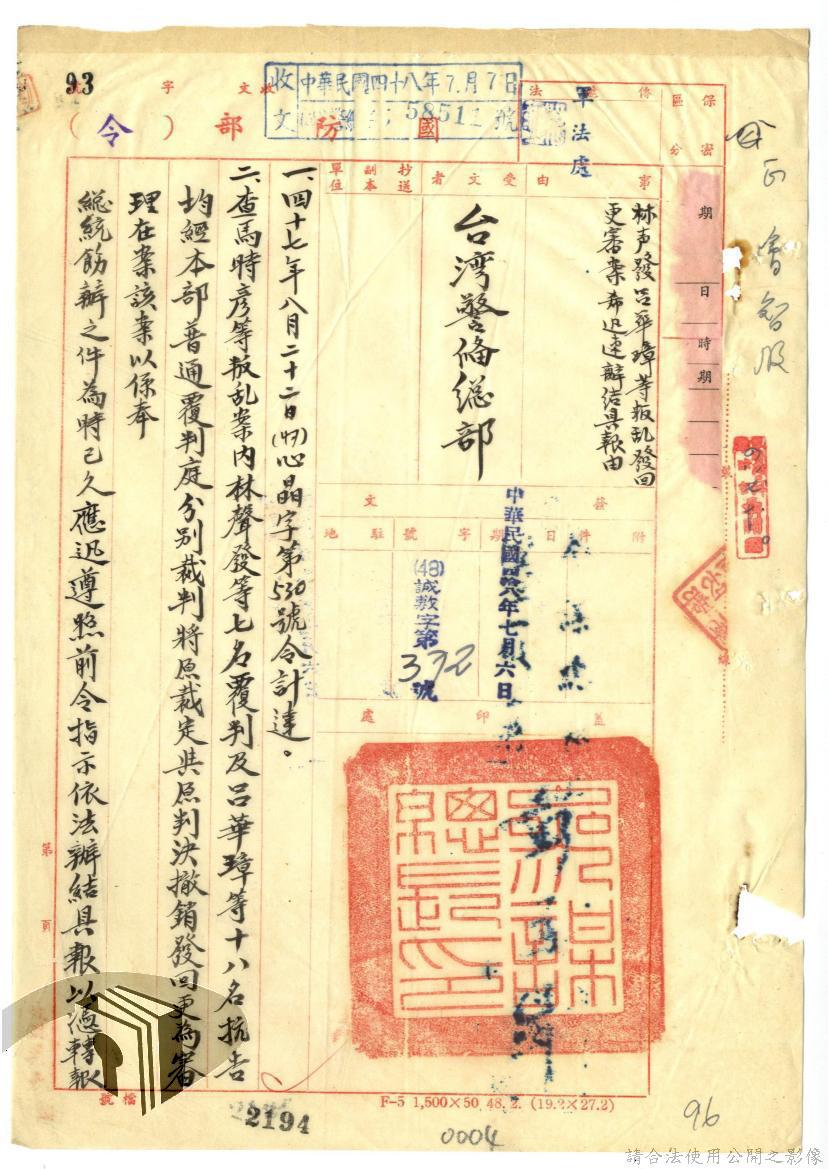 93
收文
中華民國四十八年7月7日
58511號
軍法處
國防部（令）
保密區分
傳遞方法
期限
日期
時
事由
林声發呂華璋等叛乱發回
更審案希迅速辦結具報由
受文者
台湾警备總部
抄送副本單位
發文
附件
日期
字號
駐地
中華民國四十八年七月六日
(48)誠教字第392號
蓋印處
一、四十七年八月二十二日(47)心晶字第530號令計達。
二、查馬時彥等叛乱案內林聲發等七名覆判及呂華璋等十八名抗告
均經本部普通覆判庭分別裁判將原裁定與原判決撤銷發回更為審
理在案該案以係奉
總統飭辦之件為時已久應迅遵照前令指示依法辦結具報以憑轉報
第 頁
檔號
2194
F-5 1,500×50 48. 2. (19.2×27.2)
0004
96
請合法使用公開之影像